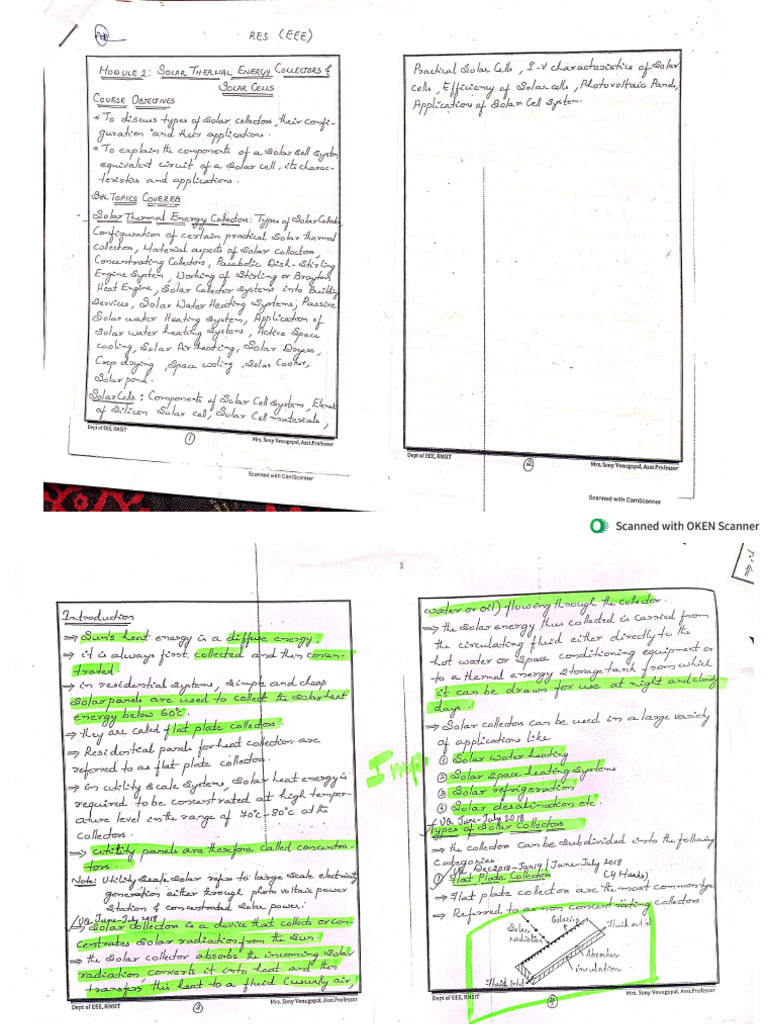 RES (EEE)
MODULE 2: SOLAR THERMAL ENERGY COLLECTORS &
SOLAR CELLS
COURSE OBJECTIVES
* To discuss types of Solar collectors, their confi-
guration and their applications.
* To explain the components of a Solar Cell System,
equivalent circuit of a Solar cell, its charac-
teristics and applications.
SUB TOPICS COVERED
Solar Thermal Energy Collectors: Types of Solar Collectors,
Configuration of certain practical Solar thermal
Collectors, Material aspects of Solar collectors,
Concentrating Collectors, Parabolic Dish-Stirling
Engine System, Working of Stirling or Brayton
Heat Engine, Solar Collector Systems into Building
Services, Solar Water Heating Systems, Passive
Solar water Heating System, Application of
Solar water heating Systems, Active Space
cooling, Solar Air heating, Solar Dryers,
Crop drying, Space cooling, Solar Cooker,
Solar pond.
Solar Cells: Components of Solar Cell System, Element
of Silicon Solar cell, Solar Cell materials,
Dept of EEE, RNSIT
1
Mrs. Sony Venugopal, Asst.Professor
Scanned with CamScanner
Practical Solar Cells, I-V characteristics of Solar
cells, Efficiency of Solar cells, Photovoltaic Panels,
Application of Solar Cell System.
Dept of EEE, RNSIT
2
Mrs. Sony Venugopal, Asst.Professor
Scanned with CamScanner
Scanned with OKEN Scanner
Introduction
⇒ Sun's heat energy is a diffuse energy.
⇒ it is always first collected and then concen-
trated.
⇒ in residential systems, simple and cheap
Solar panels are used to collect the Solar heat
energy below 60°C.
⇒ they are called flat plate collectors.
⇒ Residential panels for heat collection are
referred to as flat plate collectors.
⇒ in utility scale systems, Solar heat energy is
required to be concentrated at high temper-
ature level in the range of 40°C-80°C at the
Collectors.
⇒ utility panels are therefore called concentra-
tors.
Note: Utility Scale Solar refers to large scale electricity
generation either through photo voltaic power
Station & concentrated Solar power.
VQ June-July 2018
⇒ Solar collectors is a device that collects or con-
centrates Solar radiation from the Sun.
⇒ the Solar collector absorbs the incoming Solar
radiation, converts it into heat and then
transfers this heat to a fluid (usually air,
Dept of EEE, RNSIT
3
Mrs. Sony Venugopal, Asst.Professor
water or oil) flowing through the collector.
⇒ the Solar energy thus collected is carried from
the circulating fluid either directly to the
hot water or Space conditioning equipment or
to a thermal energy storage tank from which
it can be drawn for use at night and cloudy
days.
⇒ Solar collectors can be used in a large variety
of applications like
Imp.
① Solar water heating
② Solar space heating systems
③ Solar refrigeration
④ Solar desalination etc.
VQ June-July 2018
Types of Solar Collectors
⇒ the collectors can be subdivided into the following
Categories.
VQ Dec2018-Jan19 / June-July 2018
① Flat Plate Collectors (4 Marks)
⇒ Flat plate collectors are the most common type
⇒ Referred to as non concentrating collectors
Glazing
Fluid outlet
Solar
radiation
Absorber
insulation
Fluid inlet
Dept of EEE, RNSIT
4
Mrs. Sony Venugopal, Asst.Professor